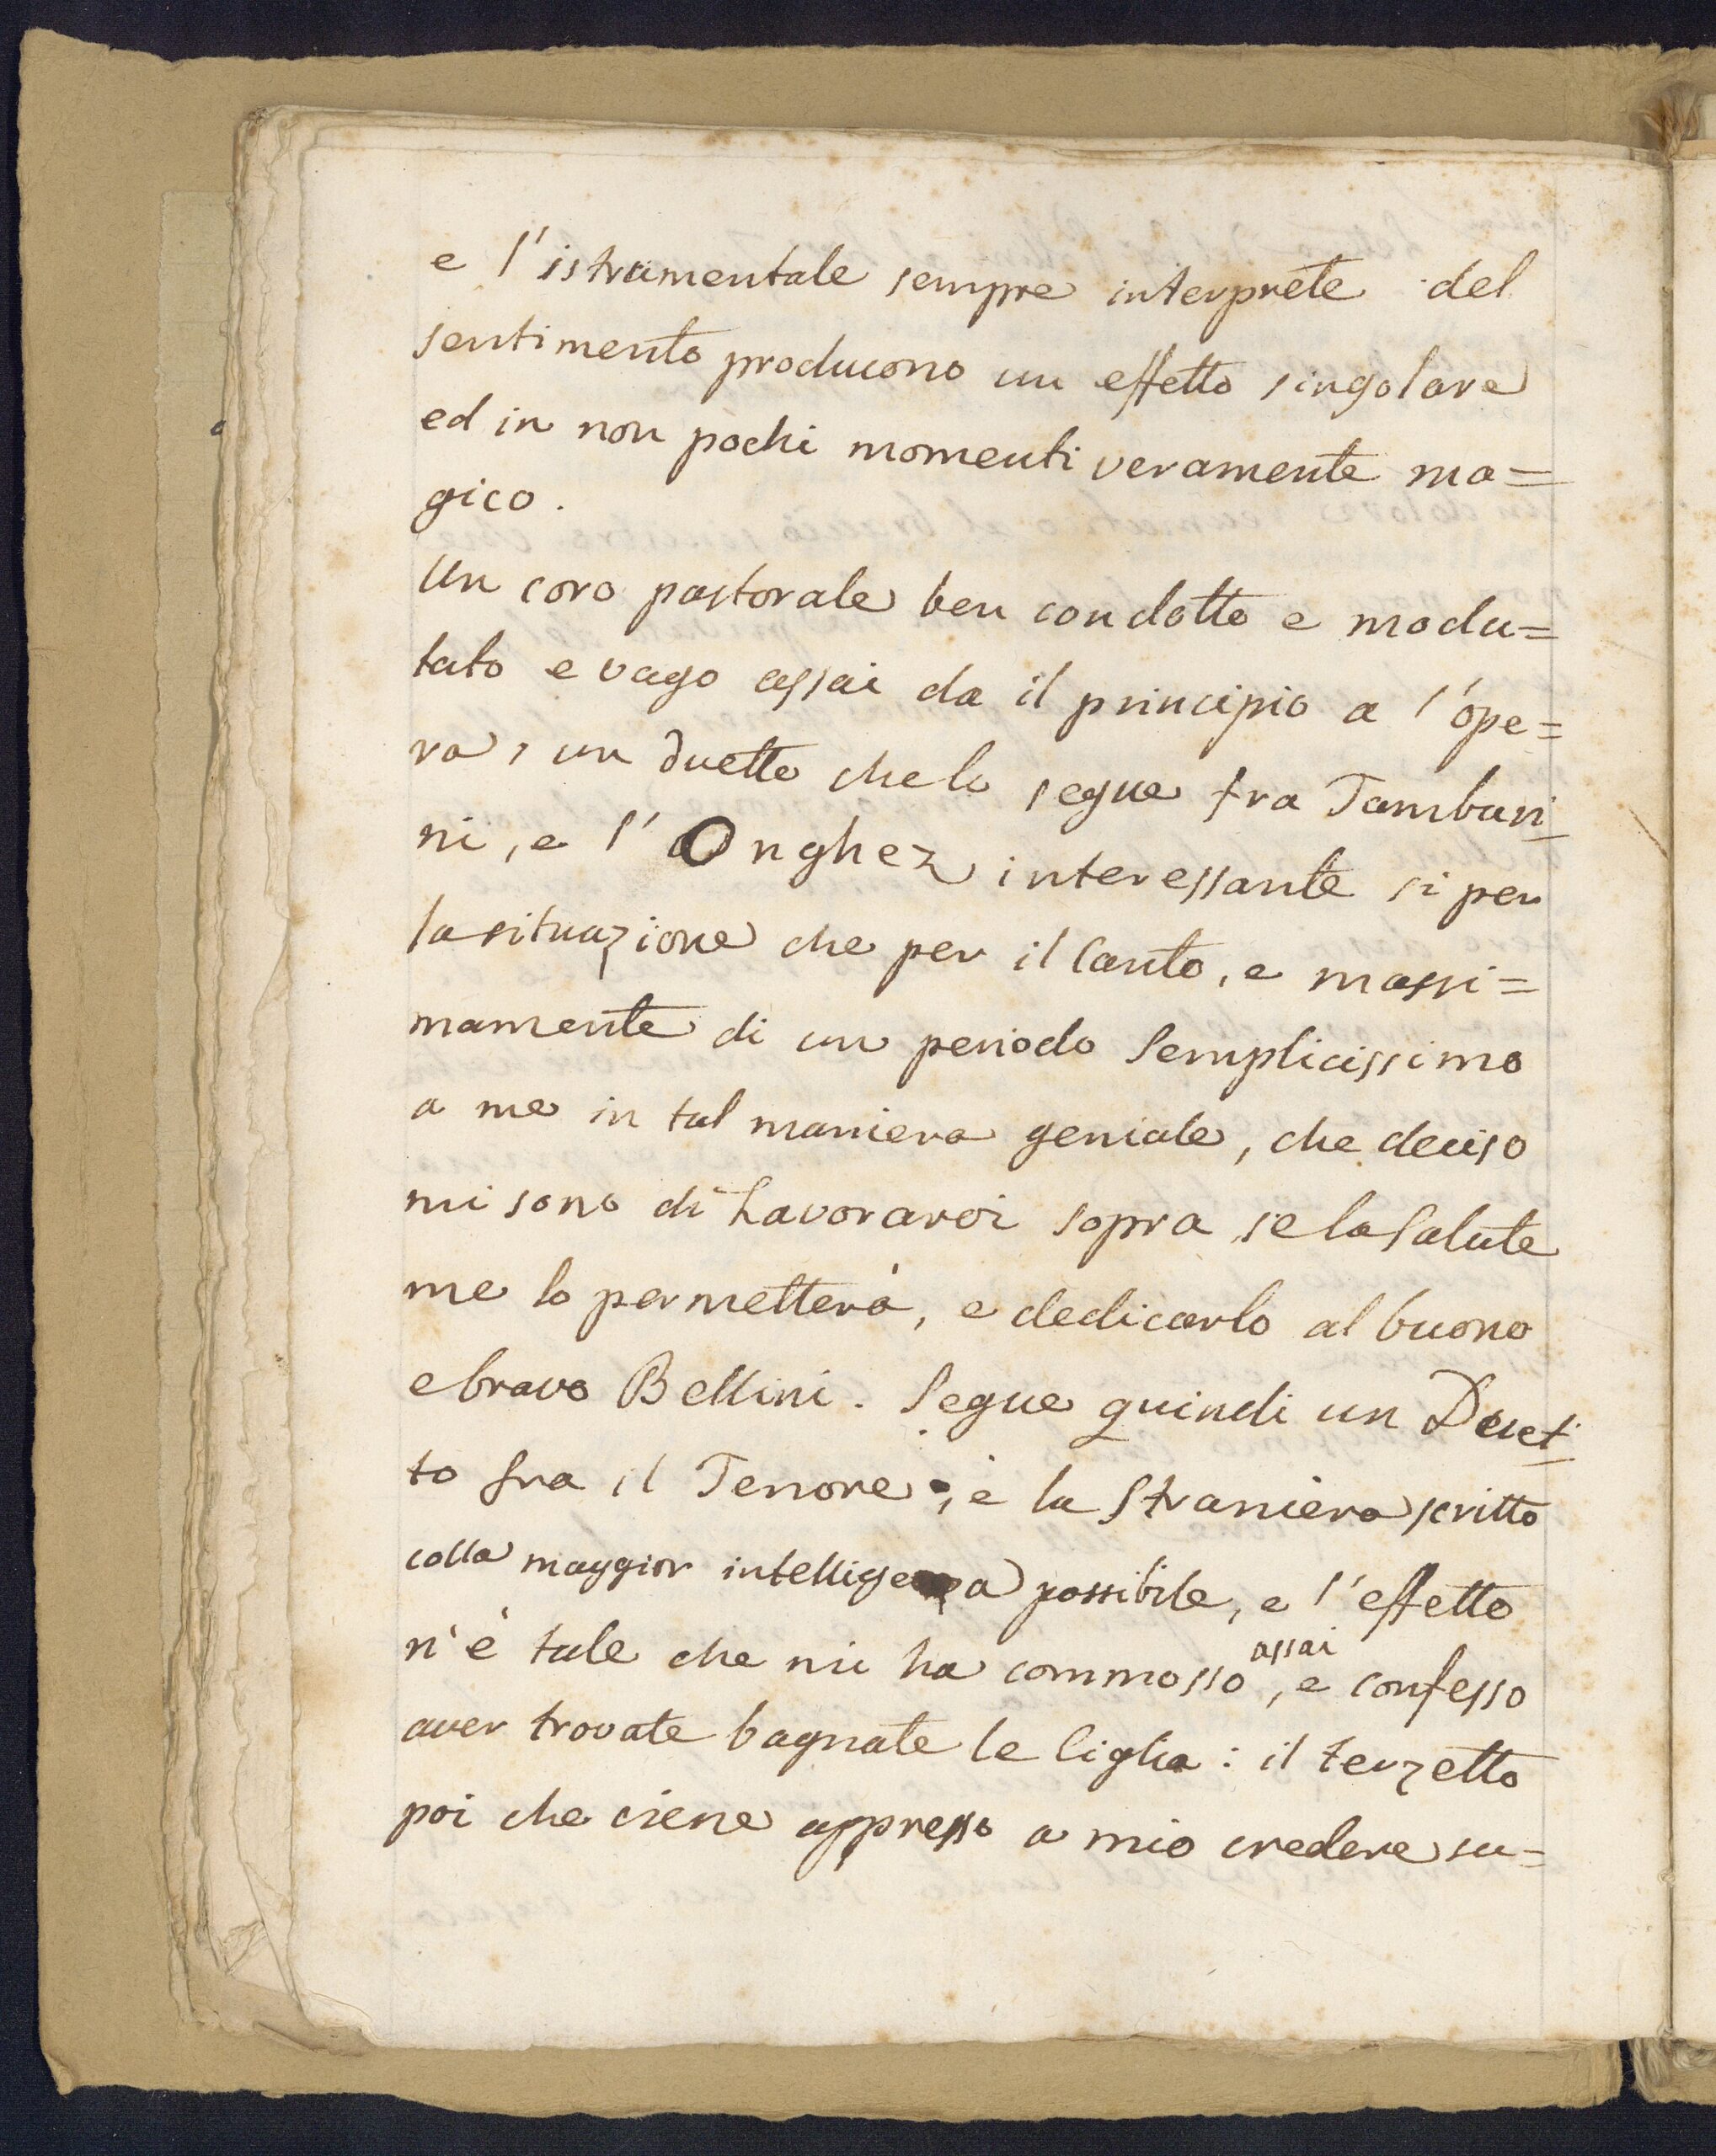 e l'istrumentale sempre interprete del
sentimento producono un effetto singolare
ed in non pochi momenti veramente ma=
gico.
Un coro pastorale ben condotto e modu=
lato e vago assai da il principio a l'ope=
ra, un duetto che lo segue fra Tamburi=
ni, e l'Onghez interessante si per
la situazione che per il Canto, e massi=
mamente di un periodo Semplicissimo
a me in tal maniera geniale, che deciso
mi sono di Lavorarvi sopra se la Salute
me lo permetterà, e dedicarlo al buono
e bravo Bellini. Segue quindi un Duet=
to fra il Tenore, e la Straniera scritto
colla maggior intelligenza possibile, e l'effetto
n'è tale che mi ha commosso assai, e confesso
aver trovate bagnate le Ciglia: il terzetto
poi che viene appresso a mio credere su=